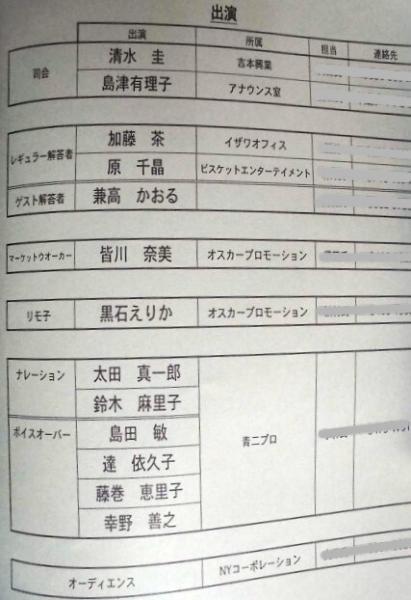 出演
出演 所属 担当 連絡先
司会 清水 圭 吉本興業
島津有理子 アナウンス室
レギュラー解答者 加藤 茶 イザワオフィス
原 千晶 ビスケットエンターテイメント
ゲスト解答者 兼高 かおる
マーケットウオーカー 皆川 奈美 オスカープロモーション
リモ子 黒石えりか オスカープロモーション
ナレーション 太田 真一郎
鈴木 麻里子
ボイスオーバー 島田 敏 青二プロ
達 依久子
藤巻 恵里子
幸野 善之
オーディエンス NYコーポレーション